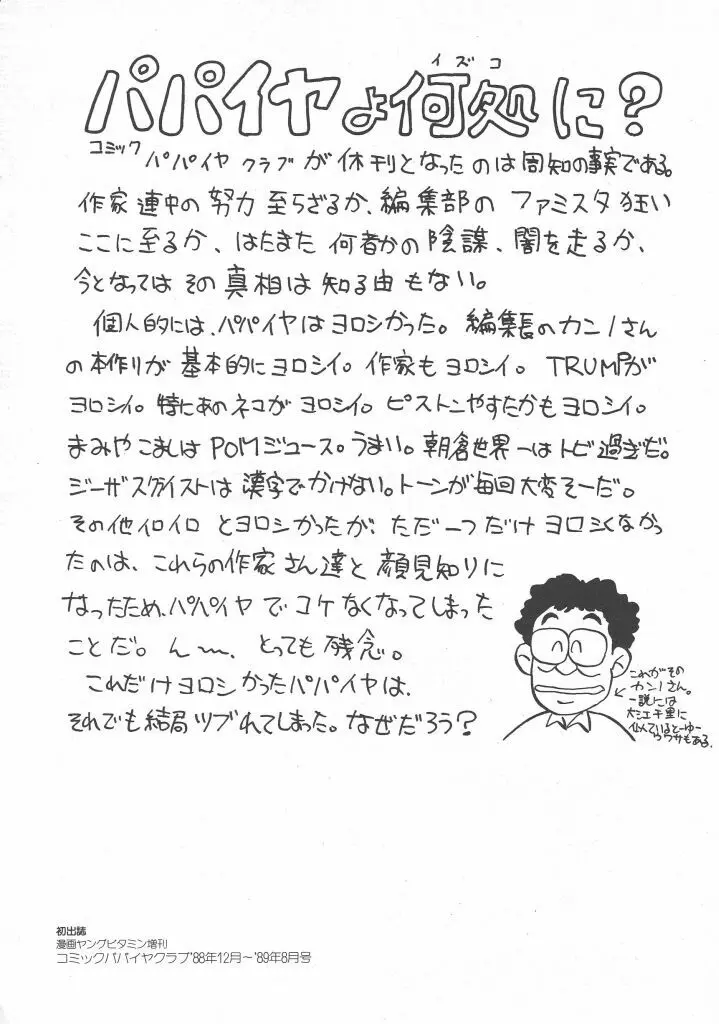 パパイヤよ何処に?
イズコ
コミックパパイヤクラブが休刊となったのは周知の事実である。
作家連中の努力至らざるか、編集部のファミスタ狂い
ここに至るか、はたまた何者かの陰謀、闇を走るか、
今となってはその真相は知る由もない。
個人的には、パパイヤはヨロシかった。編集長のカンノさん
の本作りが基本的にヨロシイ。作家もヨロシイ。TRUMPが
ヨロシイ。特にあのネコがヨロシイ。ピストンやすたかもヨロシイ。
まみやこましはPOMジュース。うまい。朝倉世界一はトビ過ぎだ。
ジーザスグイストは漢字でかけない。トーンが毎回大変そーだ。
その他イロイロとヨロシかったが、ただ一つだけヨロシくなかっ
たのは、これらの作家さん達と顔見知りに
なったため、パパイヤでコケなくなってしまった
ことだ。ん〜、とっても残念。
これだけヨロシかったパパイヤは、
それでも結局ツブれてしまった。なぜだろう?
これがその
カンノさん。
一説には
大江千里に
似ているとーゆー
ウワサもある。
初出誌
漫画ヤングビタミン増刊
コミックパパイヤクラブ'88年12月〜'89年8月号